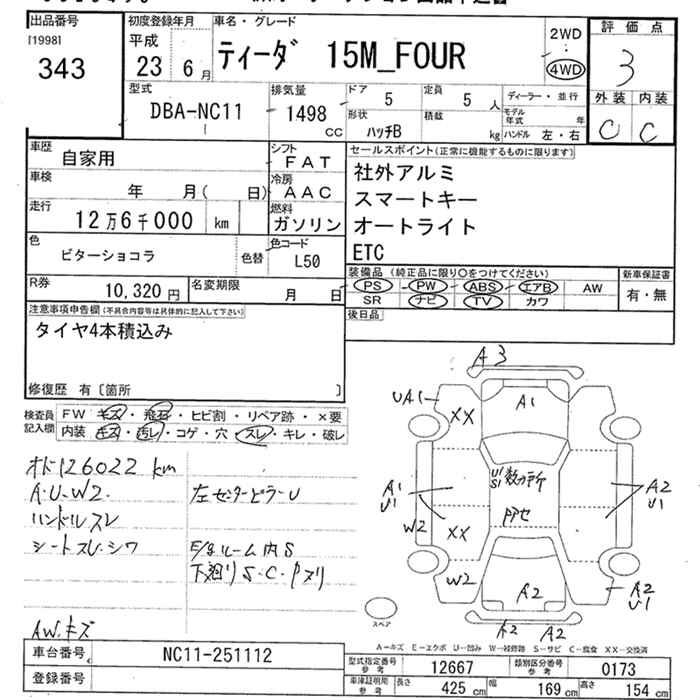 出品番号
[1998]
343
初度登録年月
平成
23 6月
車名・グレード
ティーダ 15M_FOUR
2WD
・
4WD
評価点
3
型式
DBA-NC11
排気量
1498
CC
ドア
5
定員
5 人
ディーラー・並行
形状
ハッチB
積載
kg
モデル年式 年
ハンドル 左・右
外装 内装
C C
車歴
自家用
シフト
FAT
セールスポイント(正常に機能するものに限ります)
社外アルミ
スマートキー
オートライト
ETC
車検
年 月( 日)
冷房
AAC
走行
12万6千000 km
燃料
ガソリン
色
ビターショコラ
色替
色コード
L50
装備品 (純正品に限り○をつけてください)
PS PW ABS エアB AW
SR ナビ TV カワ
新車保証書
有・無
R券
10,320円
名変期限
月 日
後日品
注意事項申告欄(不具合内容等は具体的に記入して下さい)
タイヤ4本積込み
修復歴 有〔箇所 〕
検査員
記入欄
FW キズ・飛石・ヒビ割・リペア跡・×要
内装 キズ・汚レ・コゲ・穴・スレ・キレ・破レ
オド126022 km
A・U・W2
ハンドルスレ
シートスレ・シワ
AW.キズ
左センターピラーU
E/gルーム内S
下廻りS・C・Pヌリ
A3
UA1
XX
A1
A1
U1
U1
S1
数カ所
A2
U1
W2
XX
PPセ
W2
A2
A2
U1
A2 A2
スペア
A-キズ E-エクボ U-凹み W-補修跡 S-サビ C-腐食 XX-交換済
車台番号
NC11-251112
登録番号
型式指定番号
参考
12667
類別区分番号
参考
0173
車庫証明用
参考
長さ
425 cm
幅
169 cm
高さ
154 cm